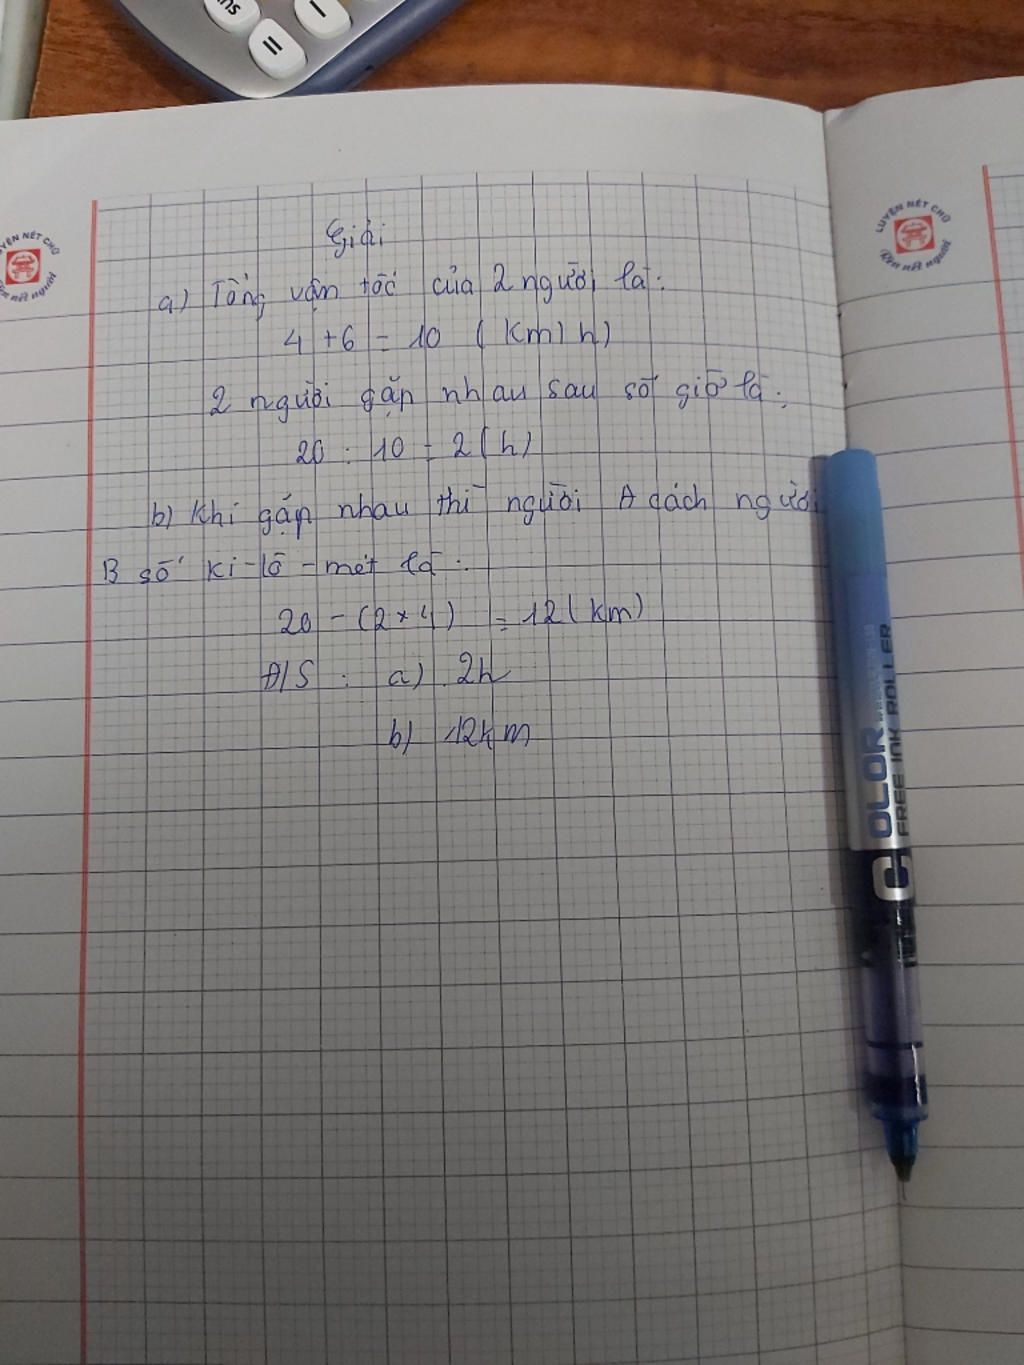 ns
−
=
LUYỆN NÉT CHỮ
Rèn nết người
LUYỆN NÉT CHỮ
Rèn nết người
Giải
a) Tổng vận tốc của 2 người là:
4 + 6 = 10 (km/h)
2 người gặp nhau sau số giờ là:
20 : 10 = 2 (h)
b) Khi gặp nhau thì người A cách người
B số ki-lô-mét là:
20 - (2 × 4) = 12 (km)
Đ/S : a) 2h
b) 12km
COLOR
FREE INK ROLLER